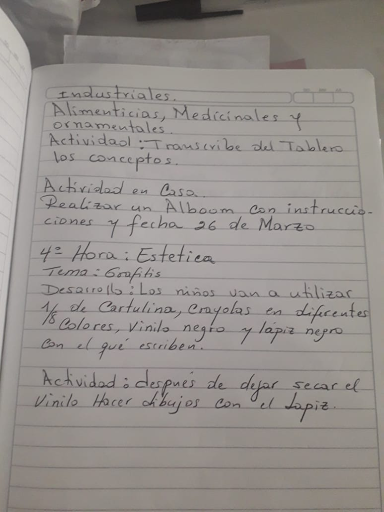 Industriales.
Alimenticias, Medicinales y
ornamentales.
Actividad: Transcribe del Tablero
los conceptos.
Actividad en Casa
Realizar un Alboom con instruccio-
ciones y fecha 26 de Marzo
4ª Hora: Estetica
Tema: Grafitis
Desarrollo: Los niños van a utilizar
1/8 de Cartulina, Crayolas en diferentes
Colores, Vinilo negro y lápiz negro
con el qué escriben.
Actividad: después de dejar secar el
Vinilo Hacer dibujos con el Lapiz.